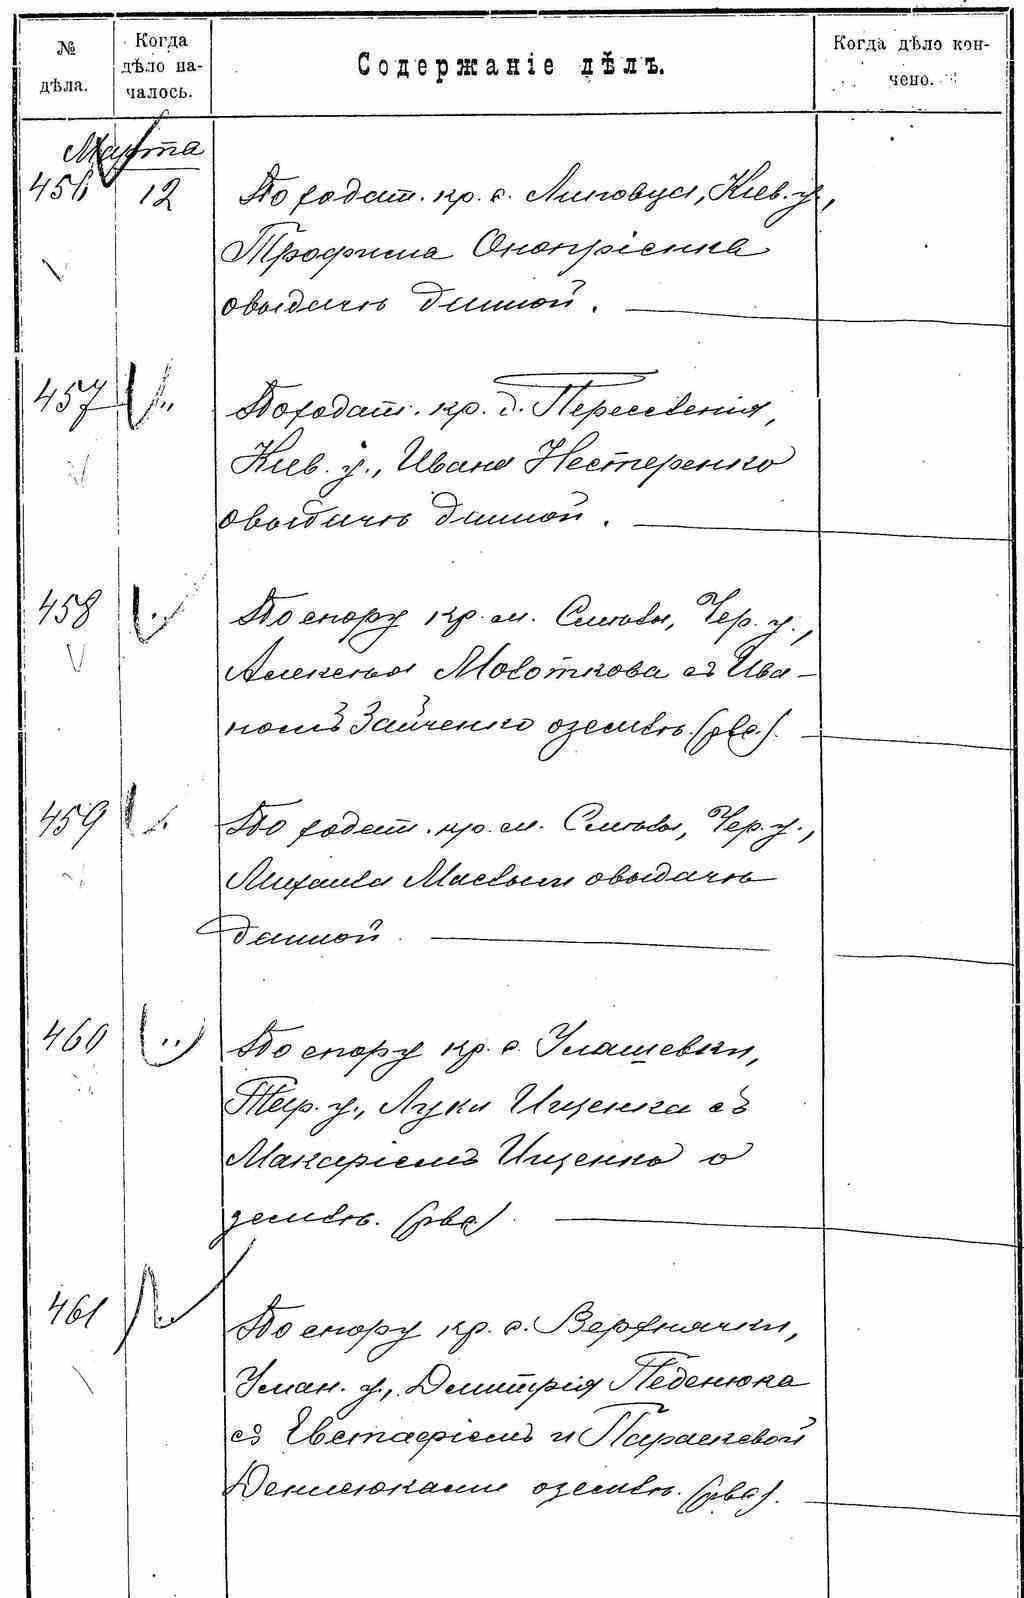 № дѣла.
Когда дѣло на-
чалось.
Содержаніе дѣлъ.
Когда дѣло кон-
чено.
Марта
456 12 По ходат. кр. с. Липовца, Кіев. у.,
Трофима Онопріенка
о выдачѣ данной.
457 По ходат. кр. д. Пересѣленія,
Кіев. у., Ивана Нестеренко
о выдачѣ данной.
458 По спору кр. м. Смѣлы, Чер. у.,
Алексѣя Молоткова съ Ива-
номъ Зайченко о землѣ. (рвс.).
459 По ходат. кр. м. Смѣлы, Чер. у.,
Михаила о выдачѣ
данной.
460 По спору кр. с. Улашевки,
Тар. у., Луки Ищенка съ
Макаріемъ Ищенко о
землѣ. (рвс)
461 По спору кр. с. Верхнячки,
Уман. у., Дмитрія Педенюка
съ Евстафіемъ и Параскевой
Денисюками о землѣ. (рвс).